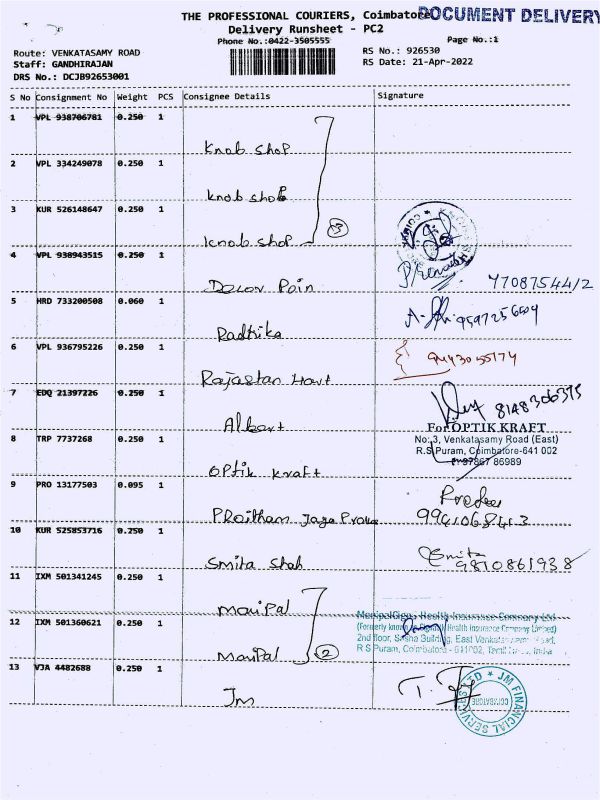 THE PROFESSIONAL COURIERS, Coimbatore
DOCUMENT DELIVERY
Delivery Runsheet - PC2
Phone No.:0422-3505555
Page No.:1
Route: VENKATASAMY ROAD
RS No.: 926530
Staff: GANDHIRAJAN
RS Date: 21-Apr-2022
DRS No.: DCJB92653001
S No Consignment No Weight PCS Consignee Details Signature
1 VPL 938706781 0.250 1
Knob shop
2 VPL 334249078 0.250 1
Knob shop
3 KUR 526148647 0.250 1
Knob shop 3
4 VPL 938943515 0.250 1
Pain 7708754412
5 HRD 733200508 0.060 1
Radhika 9597256509
6 VPL 936795226 0.250 1
9443055174
Rajastan
7 EDQ 21397226 0.250 1
Albert 8148306375
For OPTIK KRAFT
8 TRP 7737268 0.250 1
No:3, Venkatasamy Road (East)
R.S.Puram, Coimbatore-641 002
97867 86989
Optik Kraft
9 PRO 13177503 0.095 1
9941068413
10 KUR 525853716 0.250 1
Smita Shah Smita
9810861938
11 IXM 501341245 0.250 1
Manipal
ManipalCigna Health Insurance Company Ltd.
12 IXM 501360621 0.250 1
(Formerly known Health Insurance Company Limited)
2nd floor, Building, East Road,
R S Puram, Coimbatore - 641002, Tamil India
Manipal 2
13 VJA 4482688 0.250 1
Jm
JM FINANCIAL SERVICES LTD
COIMBATORE